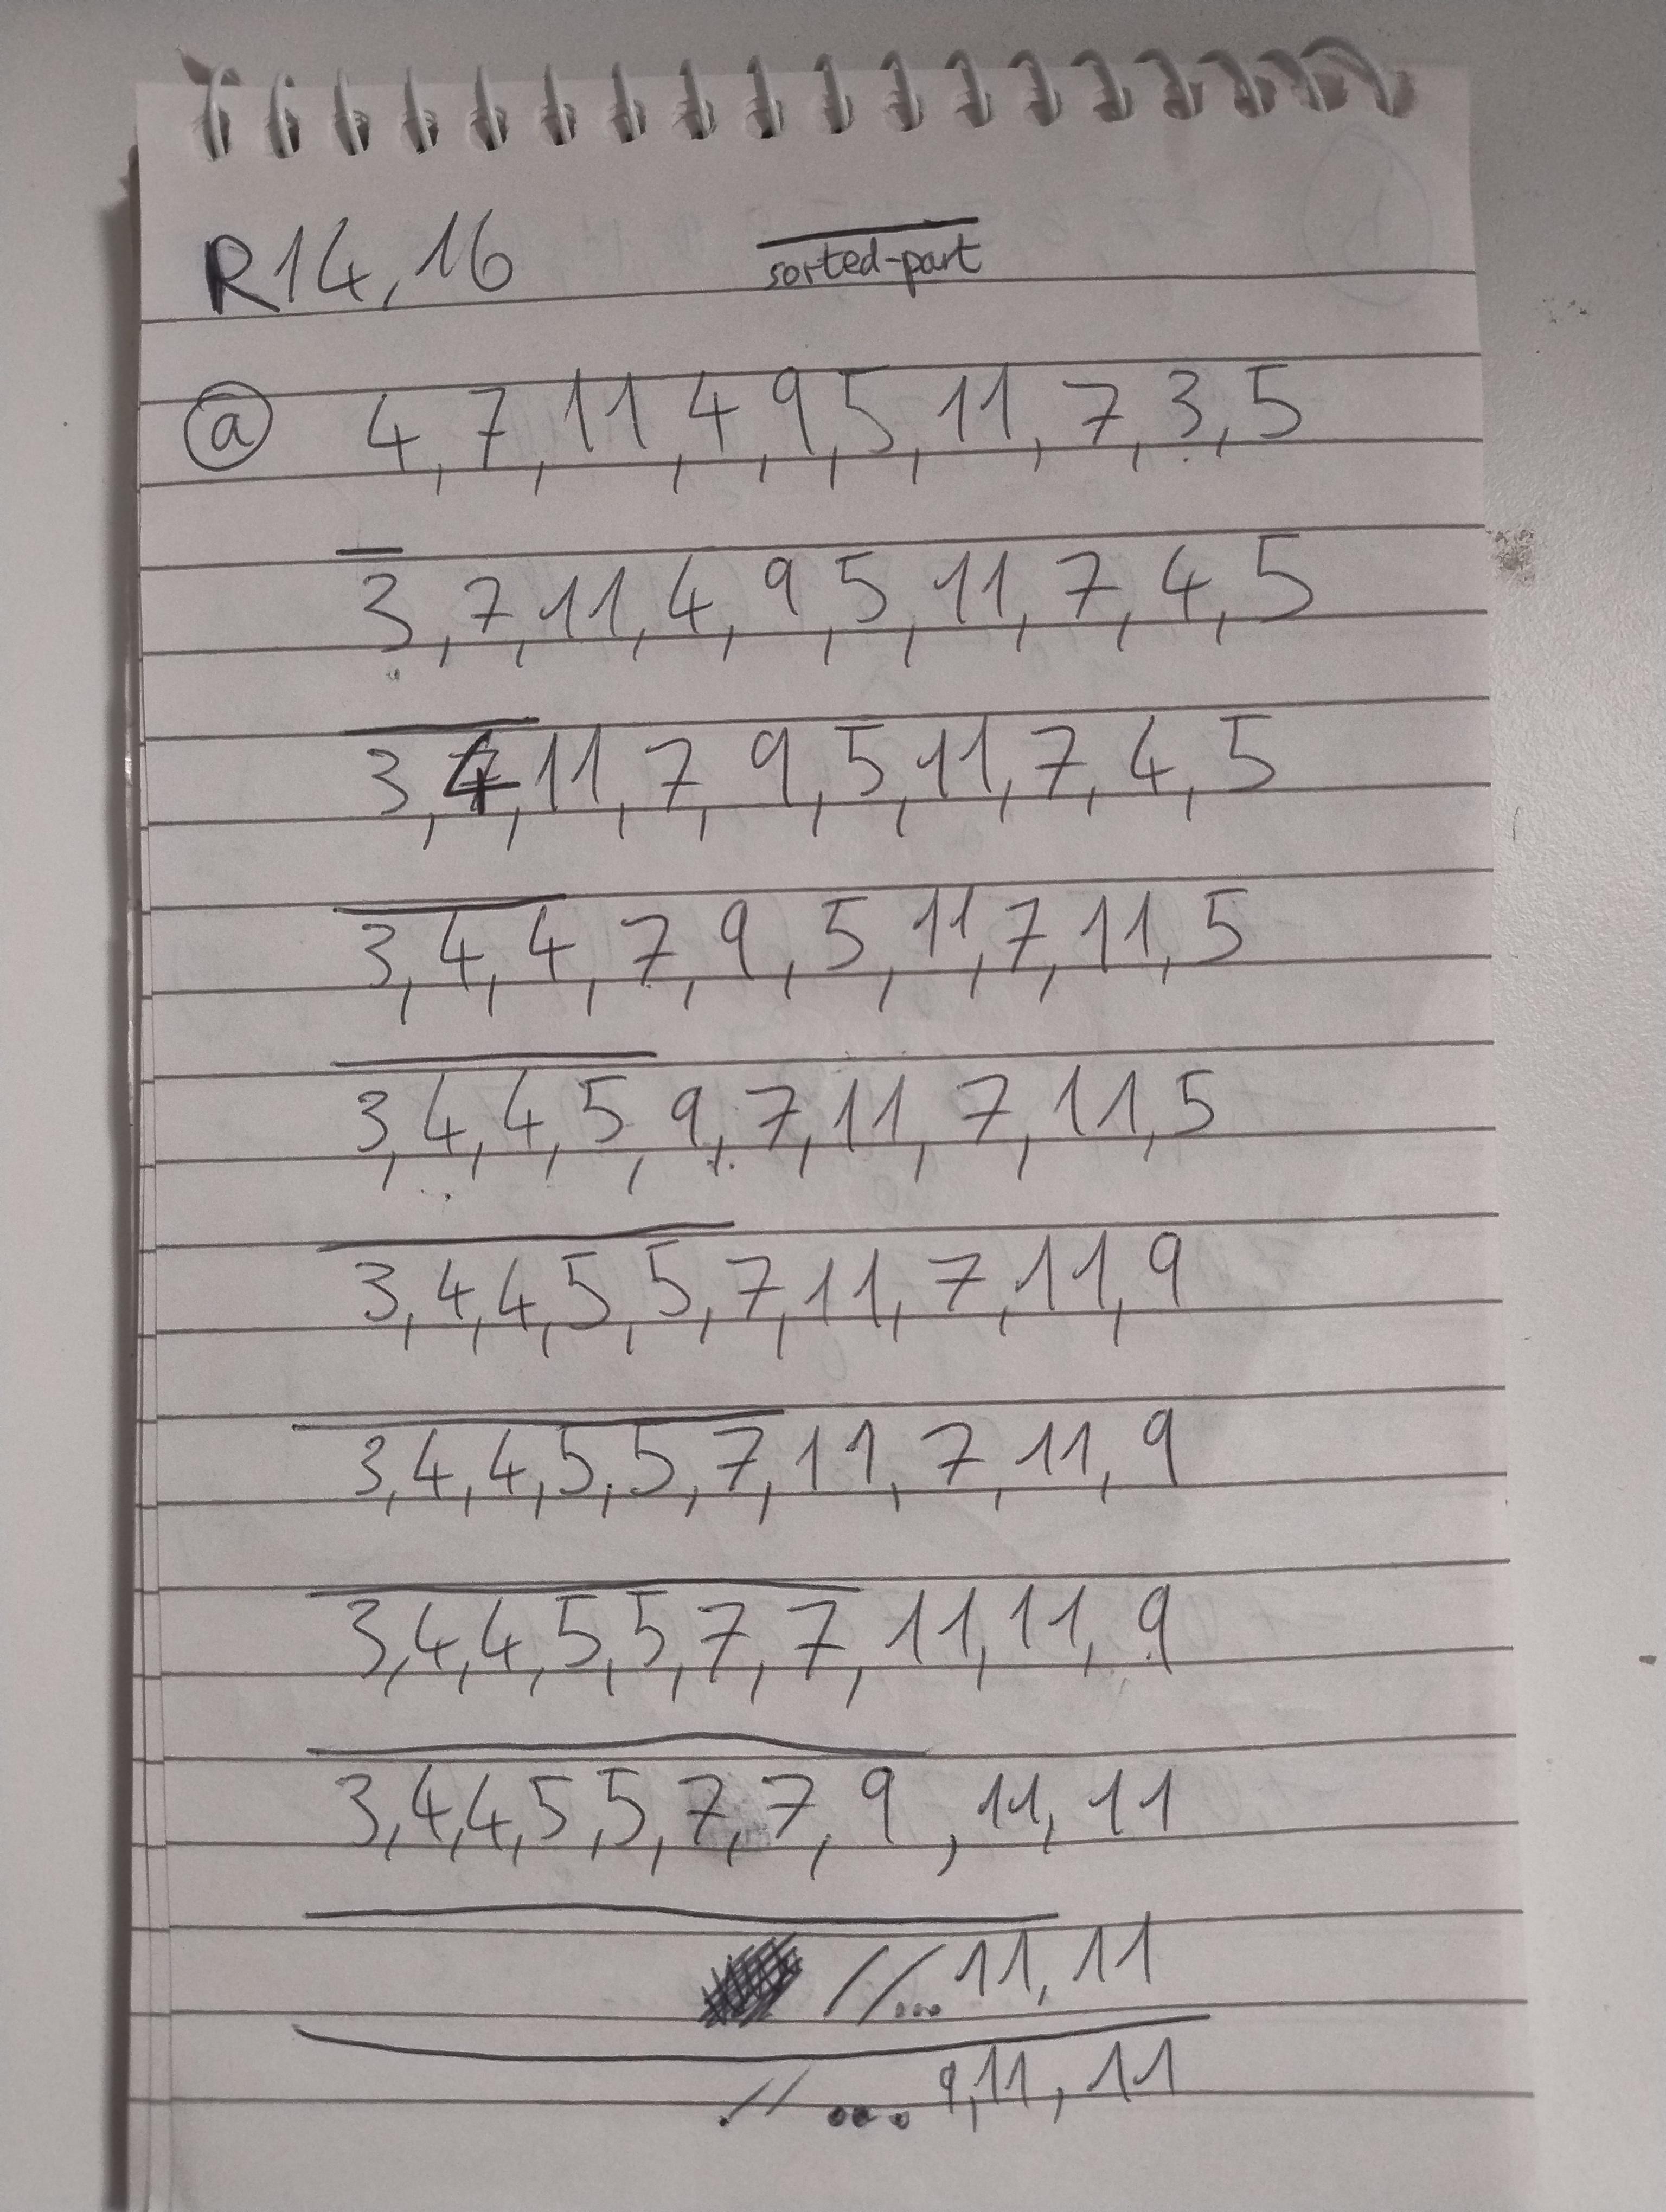 R14,16 sorted-part
ⓐ 4,7,11,4,9,5,11,7,3,5
3,7,11,4,9,5,11,7,4,5
3,4,11,7,9,5,11,7,4,5
3,4,4,7,9,5,11,7,11,5
3,4,4,5,9,7,11,7,11,5
3,4,4,5,5,7,11,7,11,9
3,4,4,5,5,7,11,7,11,9
3,4,4,5,5,7,7,11,11,9
3,4,4,5,5,7,7,9,11,11
//...11,11
//...9,11,11